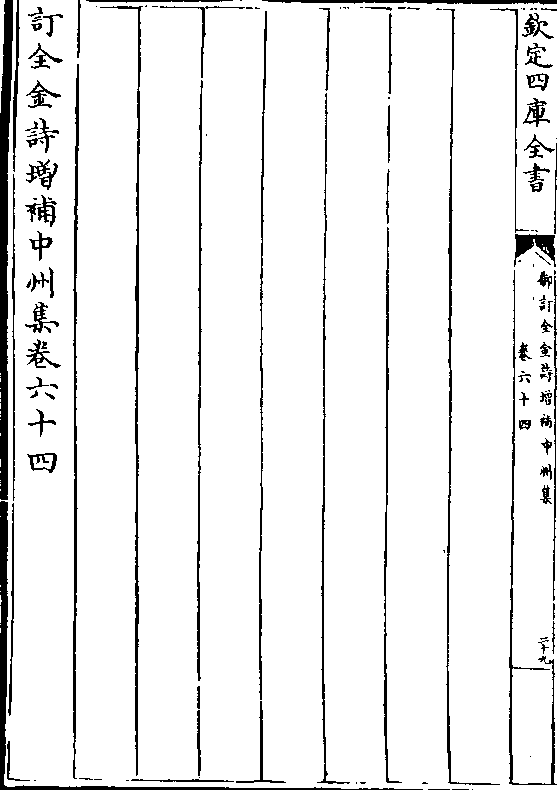 欽定四庫全書
御訂全金詩增補中州集
卷六十四
二十九
訂全金詩增補中州集卷六十四